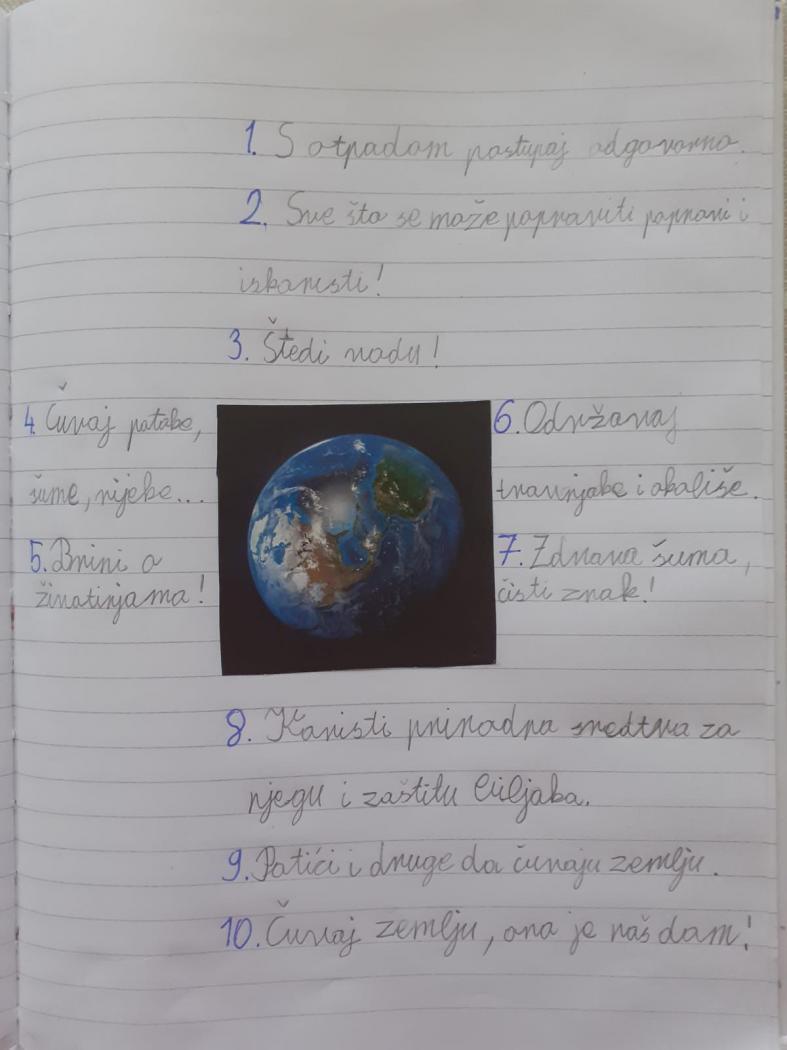 1. S otpadom postupaj odgovorno.
2. Sve što se može popraviti popravi i
iskoristi!
3. Štedi vodu!
4. Čuvaj potoke,
šume, rijeke...
5. Brini o
životinjama!
6. Održavaj
travnjake i okoliše.
7. Zdrava šuma,
čisti zrak!
8. Koristi prirodna sredtva za
njegu i zaštitu biljaka.
9. Potići i druge da čuvaju zemlju.
10. Čuvaj zemlju, ona je naš dom!